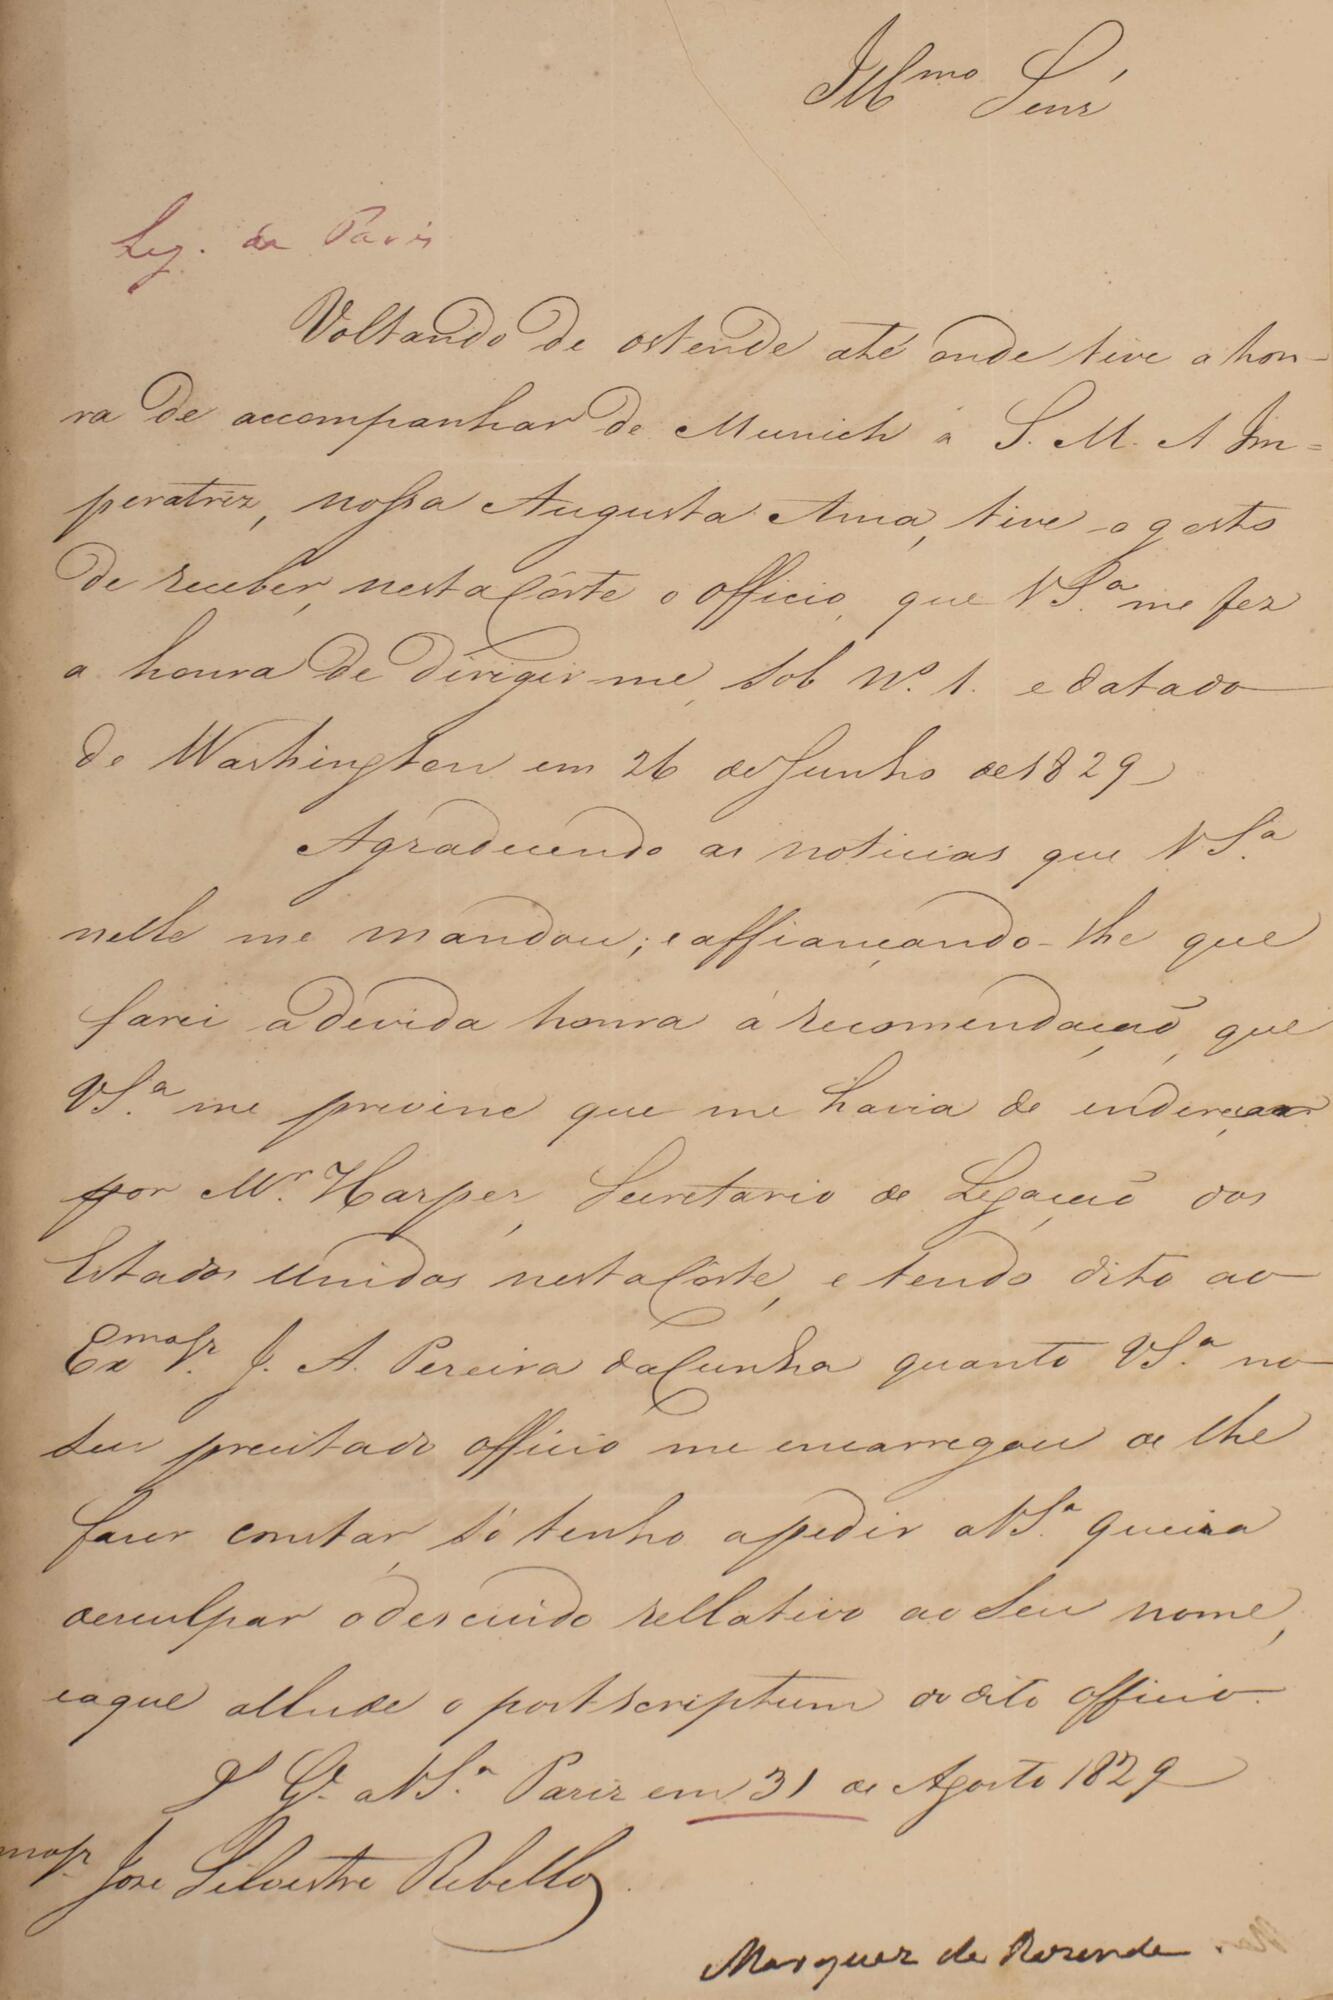 Illmo Senr
Leg. da Paris
Voltando de ostende até onde tive a hon-
ra de accompanhar de Munich a S. M. A Im=
peratriz, nossa Augusta Ama, tive o gosto
de receber, nesta Côrte o officio, que VS.a me fez
a honra de dirigir-me, sob No. 1. e datado
de Washington em 26 de Junho de 1829
Agradecendo as noticias que VS.a
nelle me mandou; e affiançando-lhe que
farei a devida honra á recomendação, que
VS.a me previne que me havia de endereçar
por Mr. Harper, Secretario de Legação dos
Estados Unidos nesta Côrte, e tendo dito ao
Exmo Sr. J. A. Pereira da Cunha quanto VS.a no
seu precitado officio me encarregou de lhe
fazer constar, só tenho a pedir a VS.a queira
desculpar o descuido rellativo ao seu nome,
e a que allude o post-scriptum do dito officio.
D G.e a VS.a Pariz em 31 de Agosto 1829
mo Sr. Jose Silvestre Rebello
Marquez de Rezende